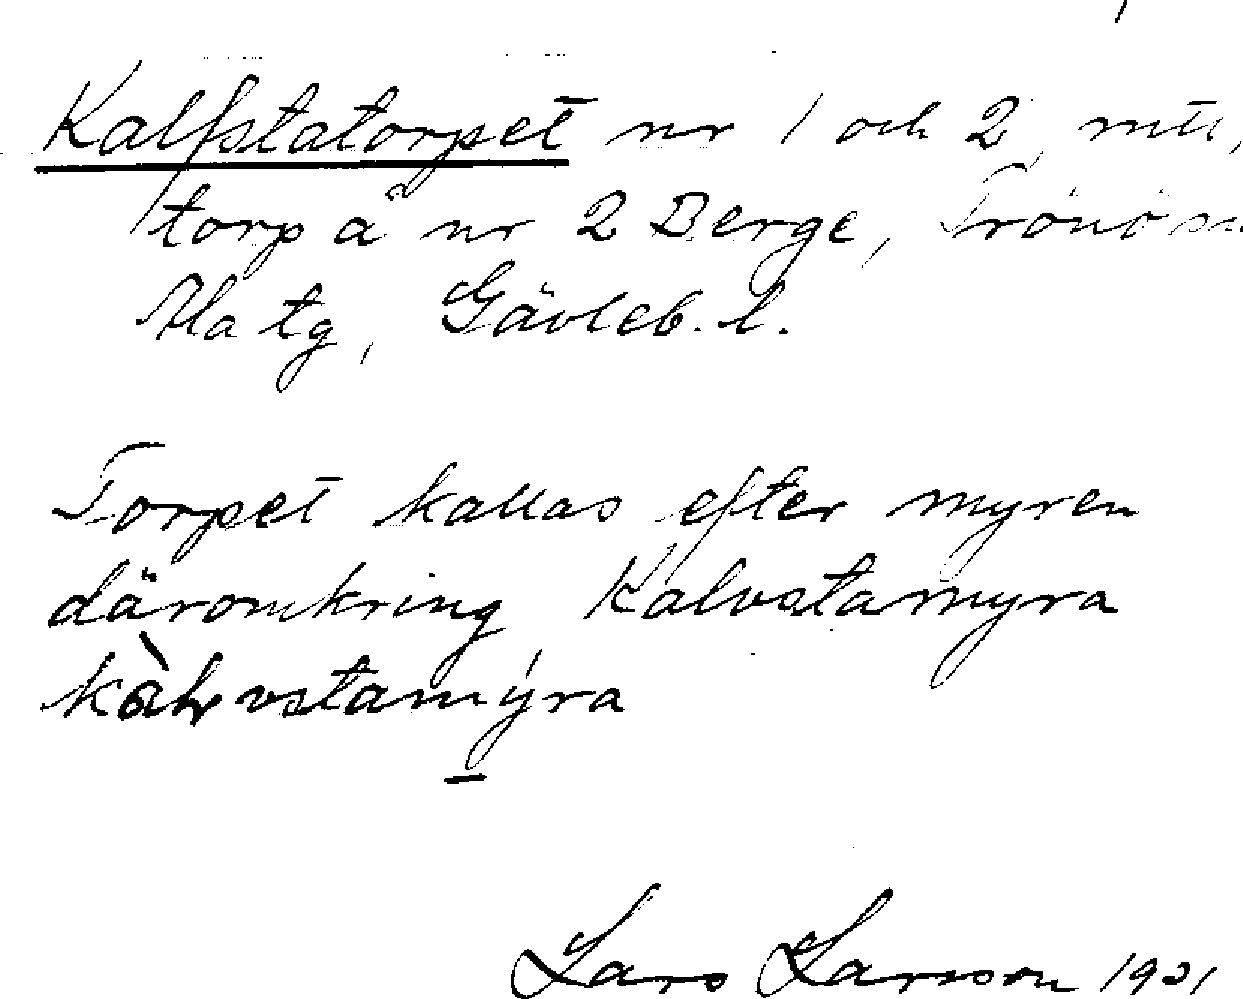 Kalfstatorpet nr 1 och 2,
torp å nr 2 Berge, Trönö sn
Ala tg, Gävleb. l.
Torpet kallas efter myren
däromkring Kalvstamyra
vstamýra
Lars Larsson 1921